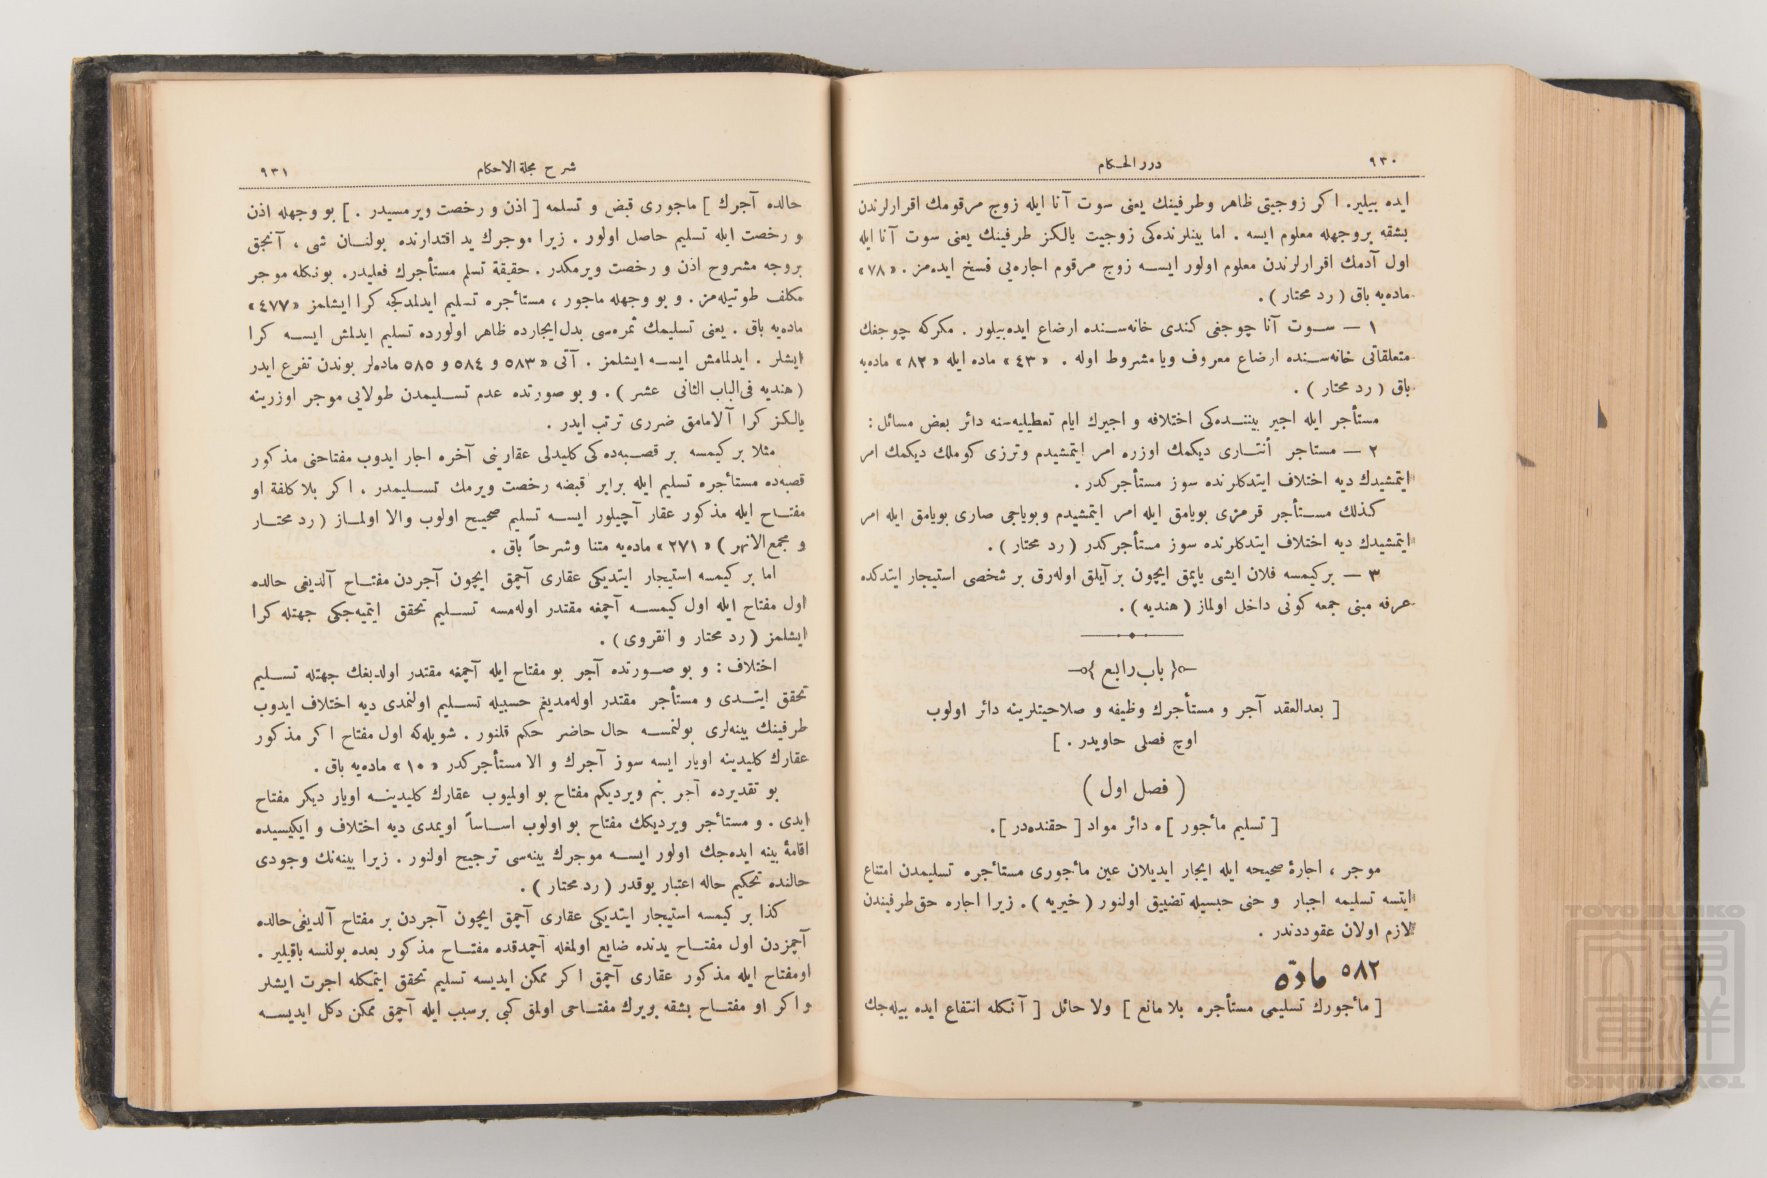 درر الحكام
٩٣٠
ايده بيلير. اكر زوجيتى ظاهر وطرفينك يعنى سوت آنا ايله زوج مرقومك اقرارلرندن
بشقه بروجهله معلوم ايسه . اما بينلرنده‌كى زوجيت يالكز طرفينك يعنى سوت آنا ايله
اول آدمك اقرارلرندن معلوم اولور ايسه زوج مرقوم اجاره‌يى فسخ ايده‌مز . «٧٨»
ماده‌يه باق (رد محتار) .
١ — سوت آنا چوجغى كندى خانه‌سنده ارضاع ايده‌بيلور . مكركه چوجغك
متعلقاتى خانه‌سنده ارضاع معروف ويا مشروط اوله . «٤٣» ماده ايله «٨٢» ماده‌يه
باق (رد محتار) .
مستأجر ايله اجير بيننده‌كى اختلافه و اجيرك ايام تعطيليه‌سنه دائر بعض مسائل :
٢ — مستاجر أنتارى ديكمك اوزره امر ايتمشيدم وترزى كوملك ديكمك امر
ايتمشيدك ديه اختلاف ايتدكلرنده سوز مستأجركدر .
كذلك مستأجر قرمزى بويامق ايله امر ايتمشيدم وبوياجى صارى بويامق ايله امر
ايتمشيدك ديه اختلاف ايتدكلرنده سوز مستأجركدر (رد محتار) .
٣ — بركيمسه فلان ايشى ياپمق ايچون بر آيلق اوله‌رق بر شخصى استيجار ايتدكده
عرفه مبنى جمعه كونى داخل اولماز (هنديه) .
﴿ باب رابع ﴾
[ بعدالعقد آجر و مستأجرك وظيفه و صلاحيتلرينه دائر اولوب
اوچ فصلى حاويدر . ]
( فصل اول )
[ تسليم مأجور ] ه دائر مواد [ حقنده‌در ] .
موجر ، اجارۀ صحيحه ايله ايجار ايديلان عين مأجورى مستأجره تسليمدن امتناع
ايتسه تسليمه اجبار و حتى حبسيله تضييق اولنور (خيريه) . زيرا اجاره حق‌طرفيندن
لازم اولان عقوددندر .
٥٨٢ مادّه
[ مأجورك تسليمى مستأجره بلا مانع ] ولا حائل [ آنكله انتفاع ايده بيله‌جك
شرح مجلة الاحكام
٩٣١
حالده آجرك ] ماجورى قبض و تسلمه [ اذن و رخصت ويرمسيدر . ] بو وجهله اذن
و رخصت ايله تسليم حاصل اولور . زيرا موجرك يد اقتدارنده بولنان شى ، آنجق
بروجه مشروح اذن و رخصت ويرمكدر . حقيقة تسلم مستأجرك فعليدر. بونكله موجر
مكلف طوتيله‌مز . و بو وجهله ماجور ، مستأجره تسليم ايدلمدكجه كرا ايشلمز «٤٧٧»
ماده‌يه باق . يعنى تسليمك ثمره‌سى بدل‌ايجارده ظاهر اولورده تسليم ايدلمش ايسه كرا
ايشلر . ايدلمامش ايسه ايشلمز . آتى «٥٨٣ و ٥٨٤ و ٥٨٥ ماده‌لر بوندن تفرع ايدر
(هنديه فى‌الباب الثانى عشر) . و بو صورتده عدم تسليمدن طولايى موجر اوزرينه
يالكز كرا آلامامق ضررى ترتب ايدر .
مثلا بر كيمسه بر قصبه‌ده كى كليدلى عقارينى آخره اجار ايدوب مفتاحنى مذكور
قصبه‌ده مستأجره تسليم ايله برابر قبضه رخصت ويرمك تسليمدر . اكر بلا كلفة او
مفتاح ايله مذكور عقار آچيلور ايسه تسليم صحيح اولوب والا اولماز (رد محتار
و مجمع‌الانهر) «٢٧١» ماده‌يه متنا وشرحاً باق .
اما بر كيمسه استيجار ايتديكى عقارى آچمق ايچون آجردن مفتاح آلديغى حالده
اول مفتاح ايله اول كيمسه آچمغه مقتدر اوله‌مسه تسليم تحقق ايتميه‌جكى جهتله كرا
ايشلمز (رد محتار و انقروى) .
اختلاف : و بو صورتده آجر بو مفتاح ايله آچمغه مقتدر اولديغك جهتله تسليم
تحقق ايتدى و مستأجر مقتدر اوله‌مديغم حسبيله تسليم اولنمدى ديه اختلاف ايدوب
طرفينك بينه‌لرى بولنمسه حال حاضر حكم قلنور . شويله‌كه اول مفتاح اكر مذكور
عقارك كليدينه اويار ايسه سوز آجرك و الا مستأجركدر «١٠» ماده‌يه باق .
بو تقديرده آجر بنم ويرديكم مفتاح بو اولميوب عقارك كليدينه اويار ديكر مفتاح
ايدى . و مستأجر ويرديكك مفتاح بو اولوب اساساً اويمدى ديه اختلاف و ايكيسيده
اقامۀ بينه ايده‌جك اولور ايسه موجرك بينه‌سى ترجيح اولنور . زيرا بينه‌نك وجودى
حالنده تحكيم حاله اعتبار يوقدر (رد محتار) .
كذا بر كيمسه استيجار ايتديكى عقارى آچمق ايچون آجردن بر مفتاح آلديغى‌حالده
آچمزدن اول مفتاح يدنده ضايع اولمغله آچمدقده مفتاح مذكور بعده بولنسه باقيلير .
اومفتاح ايله مذكور عقارى آچمق اكر ممكن ايديسه تسليم تحقق ايتمكله اجرت ايشلر
و اكر او مفتاح بشقه بريرك مفتاحى اولمق كبى برسبب ايله آچمق ممكن دكل ايديسه